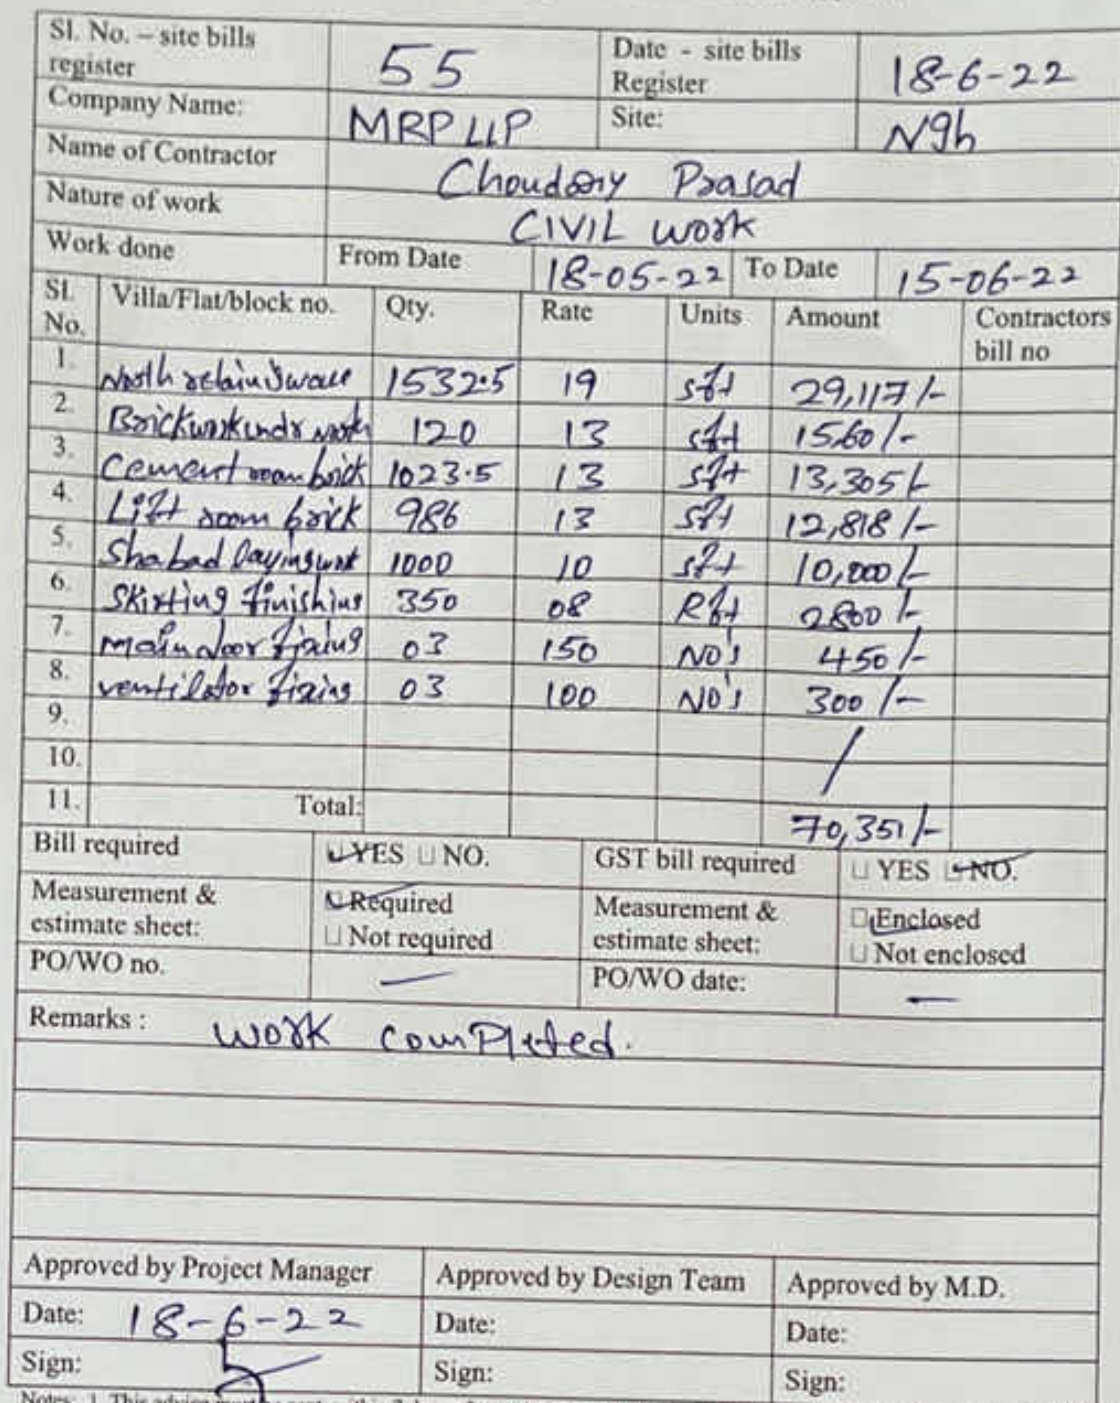 Sl. No. – site bills register 55 Date - site bills Register 18-6-22
Company Name: MRP LLP Site: Ngh
Name of Contractor Choudary Prasad
Nature of work CIVIL work
Work done From Date 18-05-22 To Date 15-06-22
Sl. No. Villa/Flat/block no. Qty. Rate Units Amount Contractors bill no
1. North 1532.5 19 sft 29,117/-
2. Brickwork 120 13 sft 1560/-
3. Cement room brick 1023.5 13 sft 13,305/-
4. Lift room brick 986 13 sft 12,818/-
5. Shabad laying 1000 10 sft 10,000/-
6. Skirting finishing 350 08 Rft 2800/-
7. main door fixing 03 150 NO's 450/-
8. ventilator fixing 03 100 NO's 300/-
9.
10.
11. Total: 70,351/-
Bill required YES NO. GST bill required YES NO.
Measurement & estimate sheet: Required Not required Measurement & estimate sheet: Enclosed Not enclosed
PO/WO no. — PO/WO date: —
Remarks : work completed.
Approved by Project Manager Approved by Design Team Approved by M.D.
Date: 18-6-22 Date: Date:
Sign: Sign: Sign:
Notes: 1. This